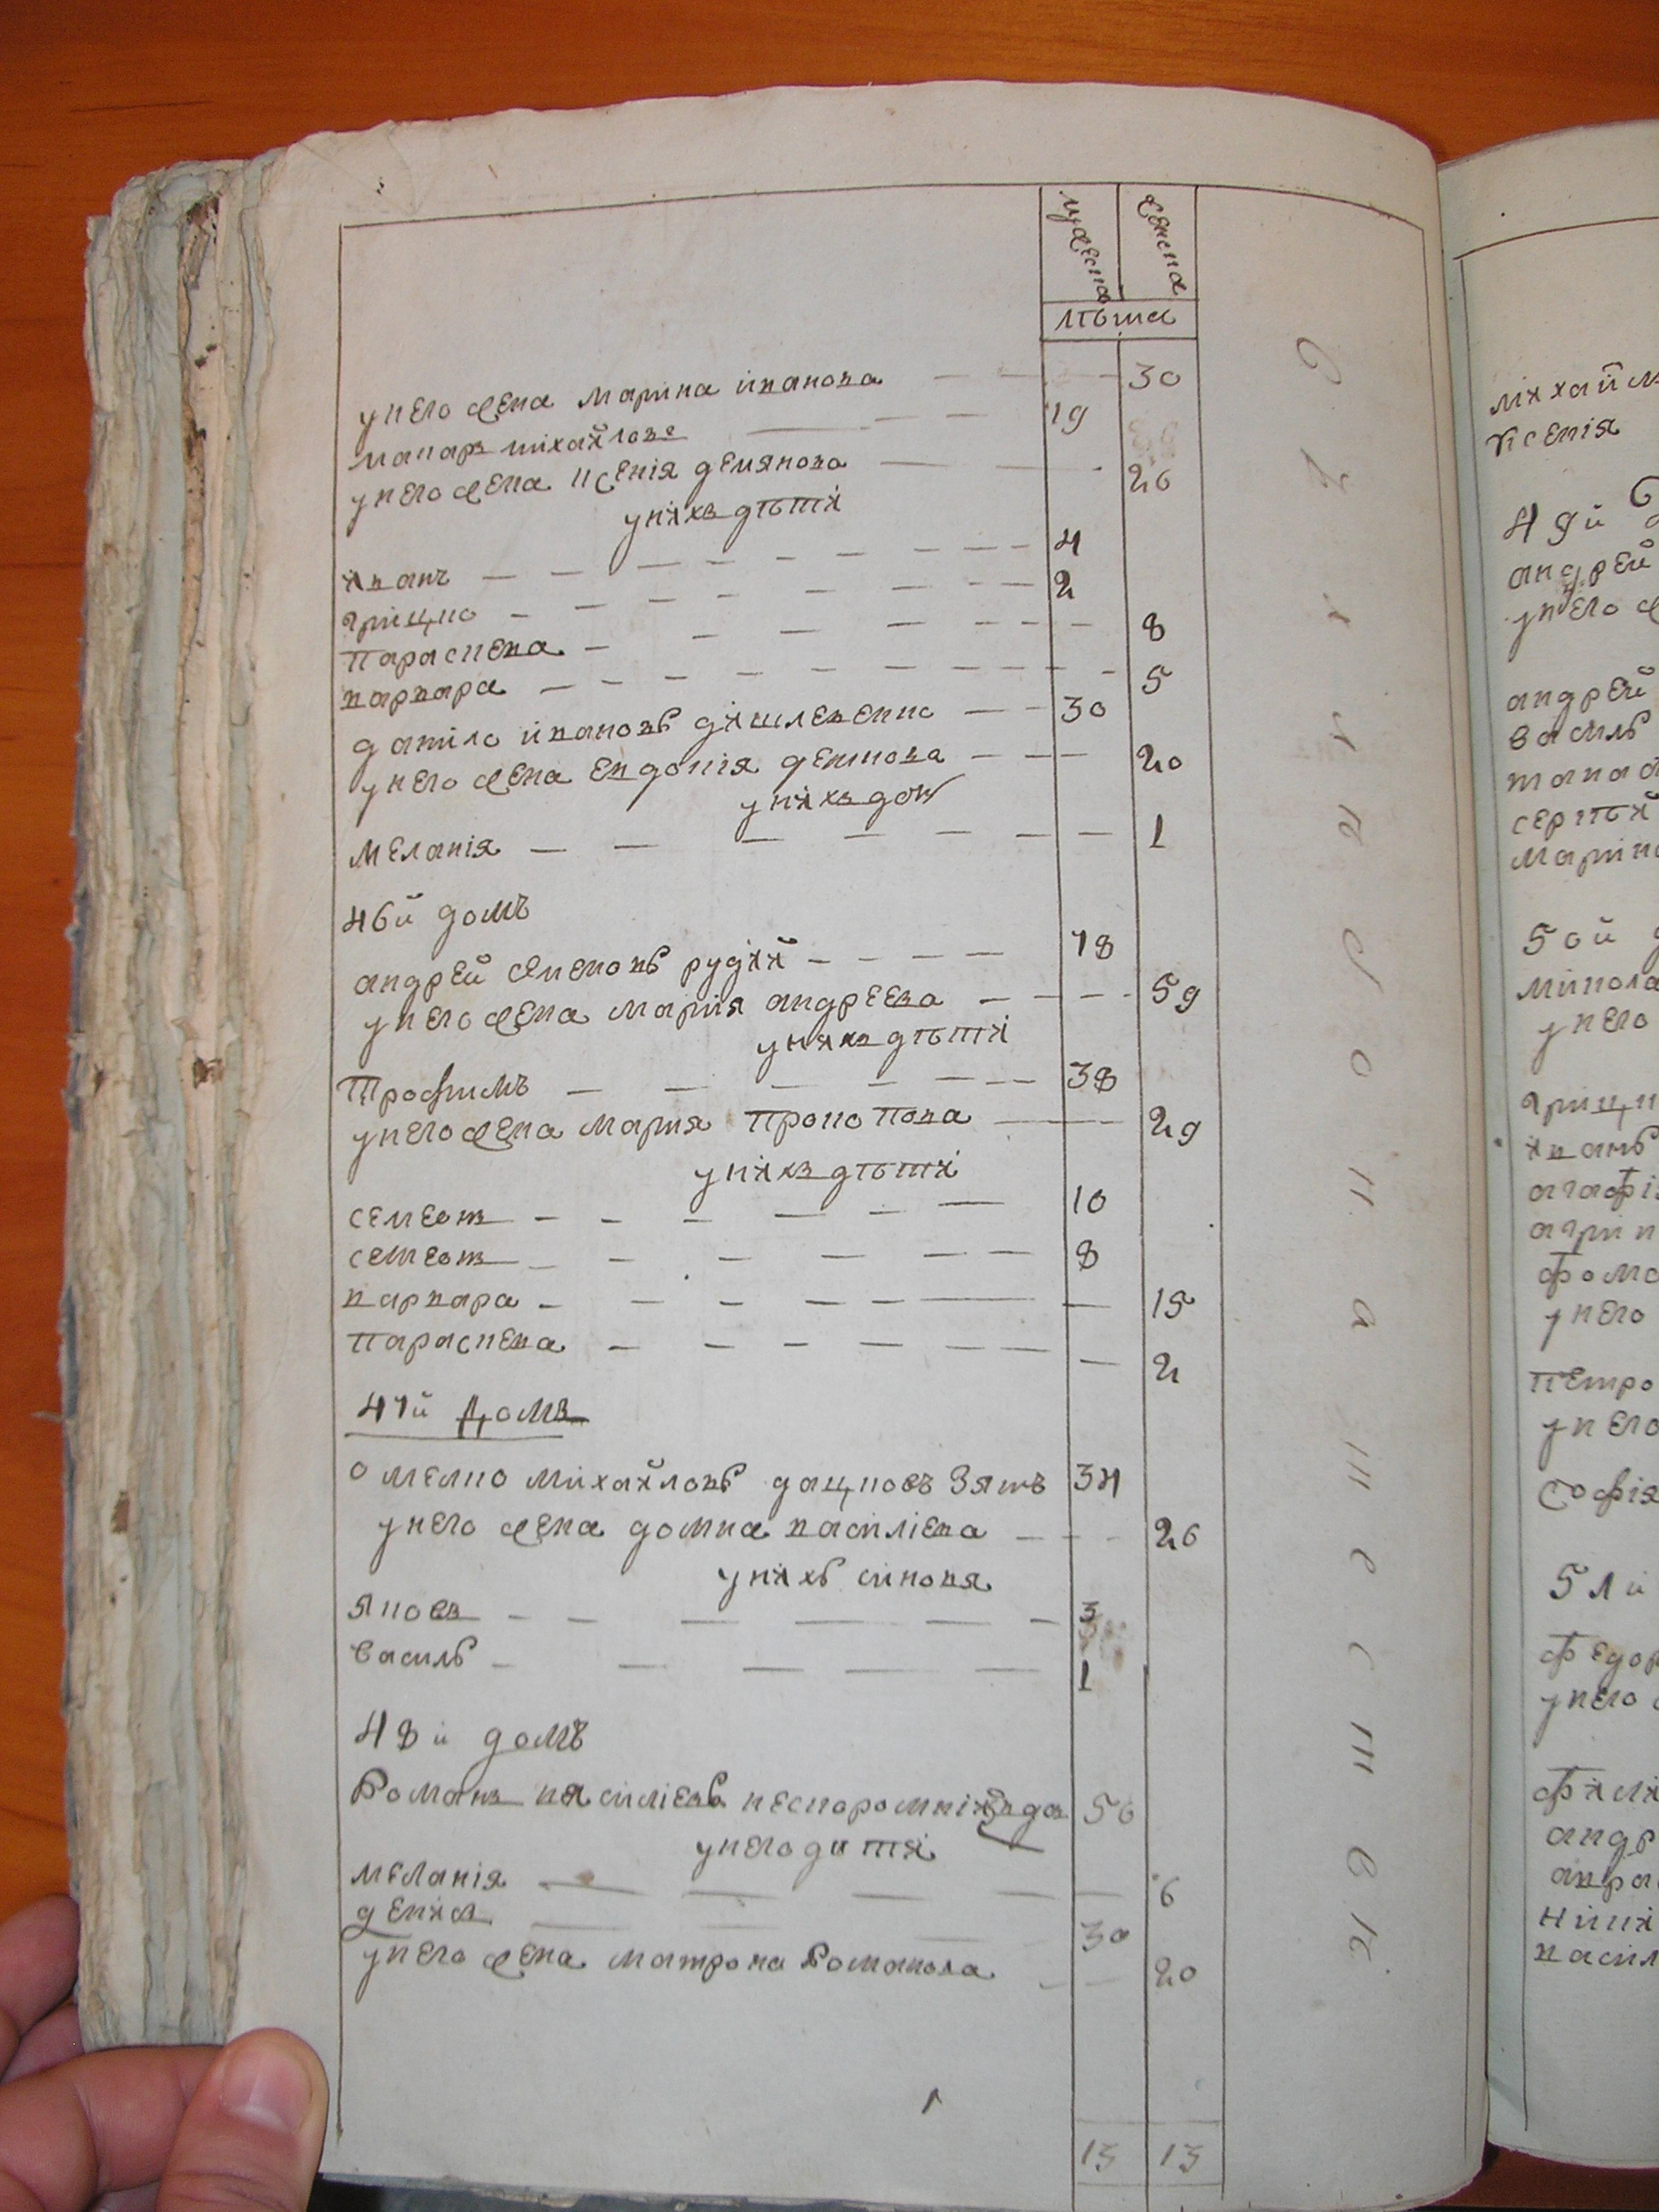 мужеска
женска
лѣта
у него жена марина иванова — — — 30
макаръ михайловъ — — — 19
у него жена ксенія демянова — — — 26
у ныхъ дѣты
ыванъ — — — 4
грицко — — — 2
параскева — — — 8
варвара — — — 5
данило ивановъ дышлевенко — — 30
у него жена евдокія — — — 20
у ныхъ доч
меланія — — — 1
46й домъ
андрей рудый — — — 78
у него жена марія андреева — — — 59
у ныхъ дѣты
трофимъ — — — 38
у него жена мария прокопова — — — 29
у ныхъ дѣты
10
семеонъ — — — 8
варвара — — — 15
параскева — — — 2
47й домъ
омелко михайловъ дацковъ зять 34
у него жена домна василіева — — — 26
у ныхъ синовя
яковъ — — — 3
василь — — — 1
48й домъ
романъ василіевъ вдовъ 56
у него дитя
меланія — — — 6
денис — — — 30
у него жена матрона романова — — 20
13 13
михайл
ксенія
49й
андрей
у него ж
андрей
василь
серпѣй
марин
50й
микола
у него
грицк
ывань
агафі
фома
у него
петро
у него
софія
51й
федор
у него
васил